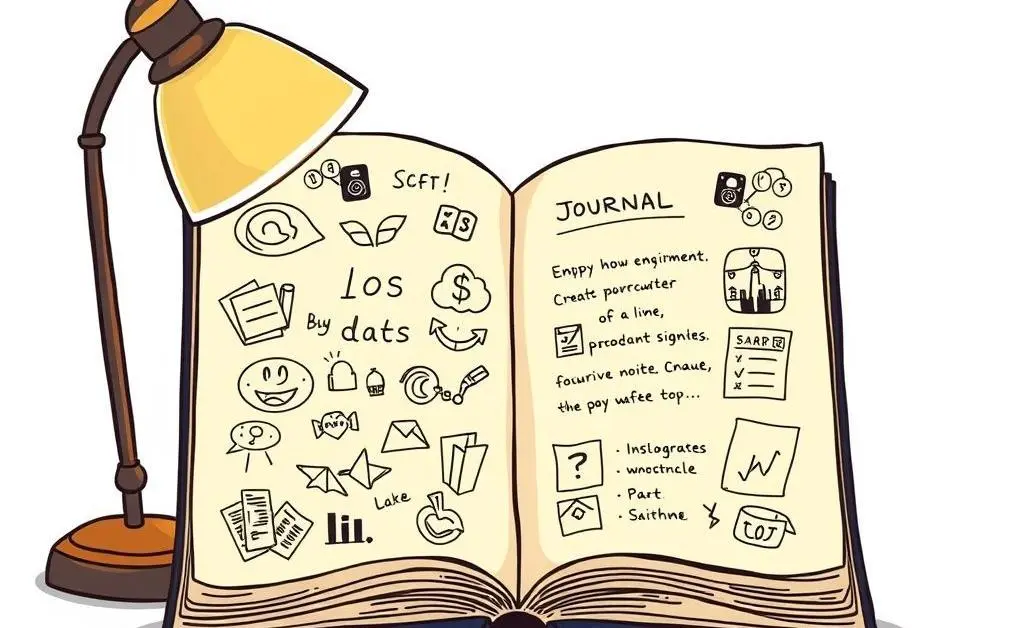 SCFT!
los
Buy dats
Lake
JOURNAL
Enppy how engirment.
Create
of a line,
prcodant signles.
focurive noite Cnaue,
the poy wafte top...
SARP
?
· Inslogrates
· wnoctncle
· Part
· Saithne